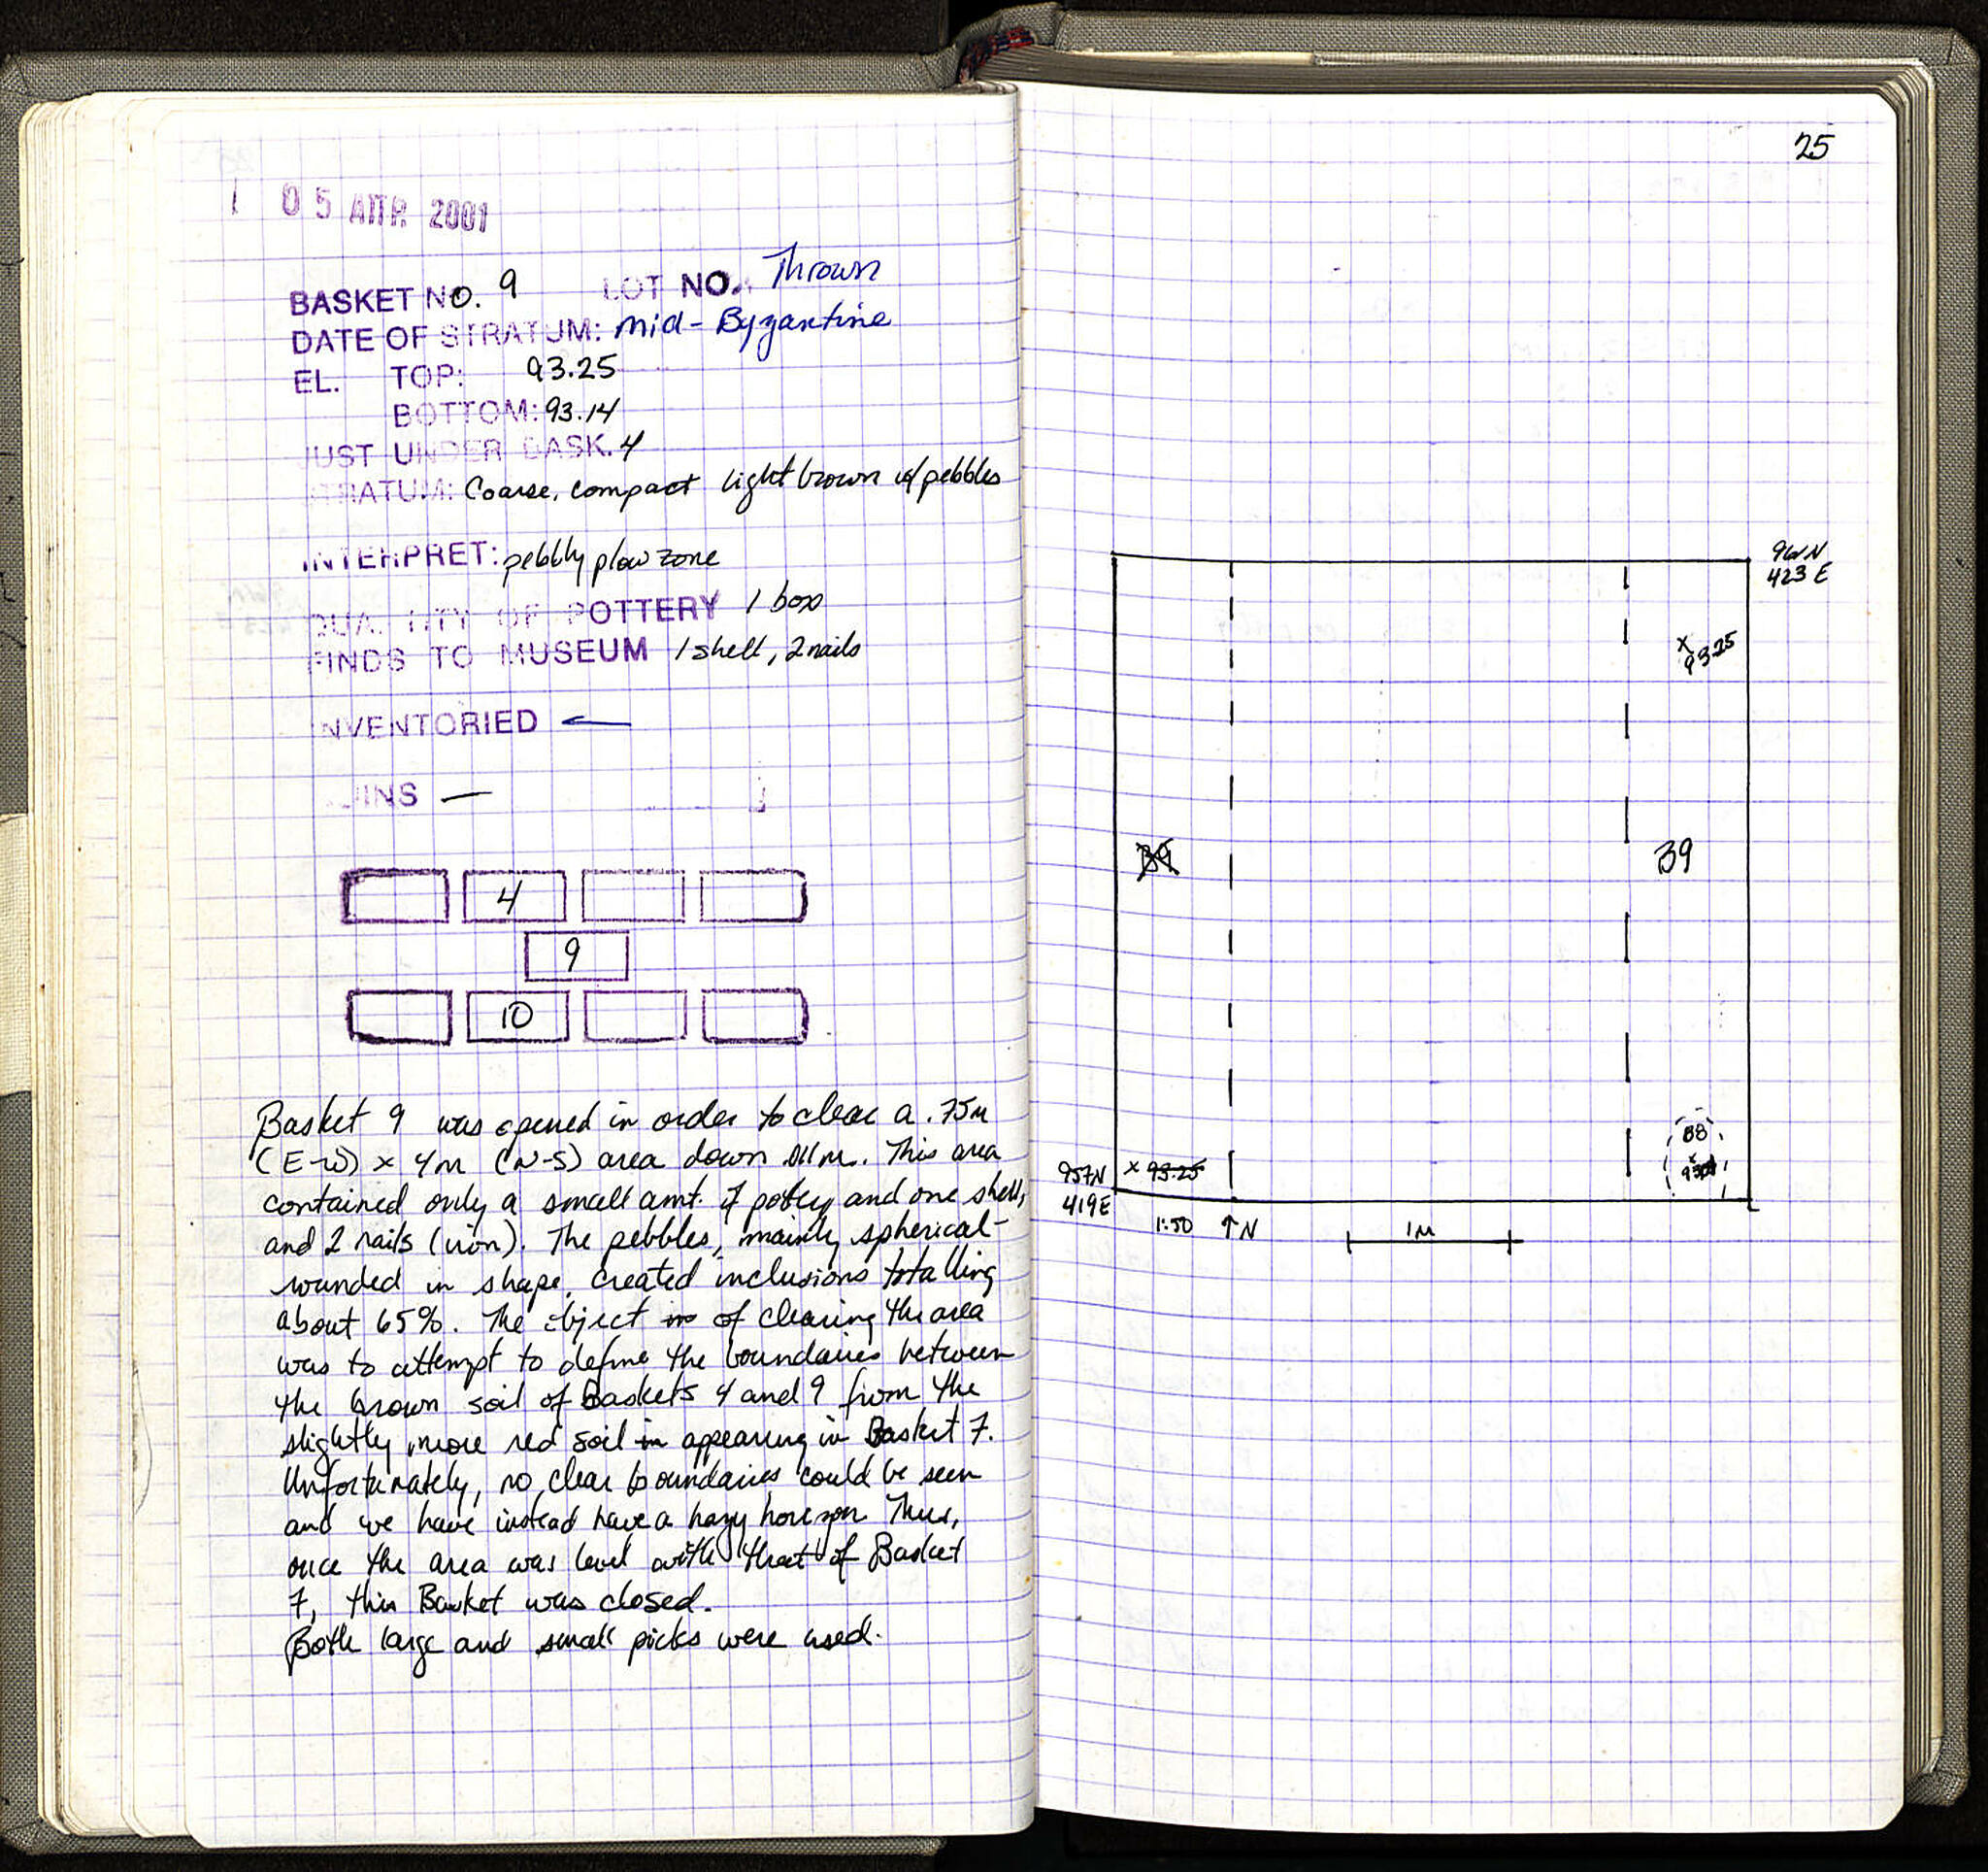 05 ΑΠΡ. 2001
BASKET NO. 9 LOT NO. Thrown
DATE OF STRATUM: Mid-Byzantine
EL. TOP: 93.25
BOTTOM: 93.14
JUST UNDER BASK. 4
STRATUM: Coarse, compact light brown w/ pebbles
INTERPRET: pebbly plow zone
QUANTITY OF POTTERY 1 box
FINDS TO MUSEUM 1 shell, 2 nails
INVENTORIED —
COINS —
4
9
10
Basket 9 was opened in order to clear a .75m
(E-W) x 4m (N-S) area down .11m. This area
contained only a small amt. of pottery and one shell,
and 2 nails (iron). The pebbles, mainly spherical-
rounded in shape, created inclusions totalling
about 65%. The object in of clearing the area
was to attempt to define the boundaries between
the brown soil of Baskets 4 and 9 from the
slightly more red soil in appearing in Basket 7.
Unfortunately, no clear boundaries could be seen
and we have instead have a hazy horizon. Thus,
once the area was level with that of Basket
7, this Basket was closed.
Both large and small picks were used.
25
961N
423 E
x
93.25
B9
B9
B8
x
957N
419E
x 93.25
1:50 ↑N 1M